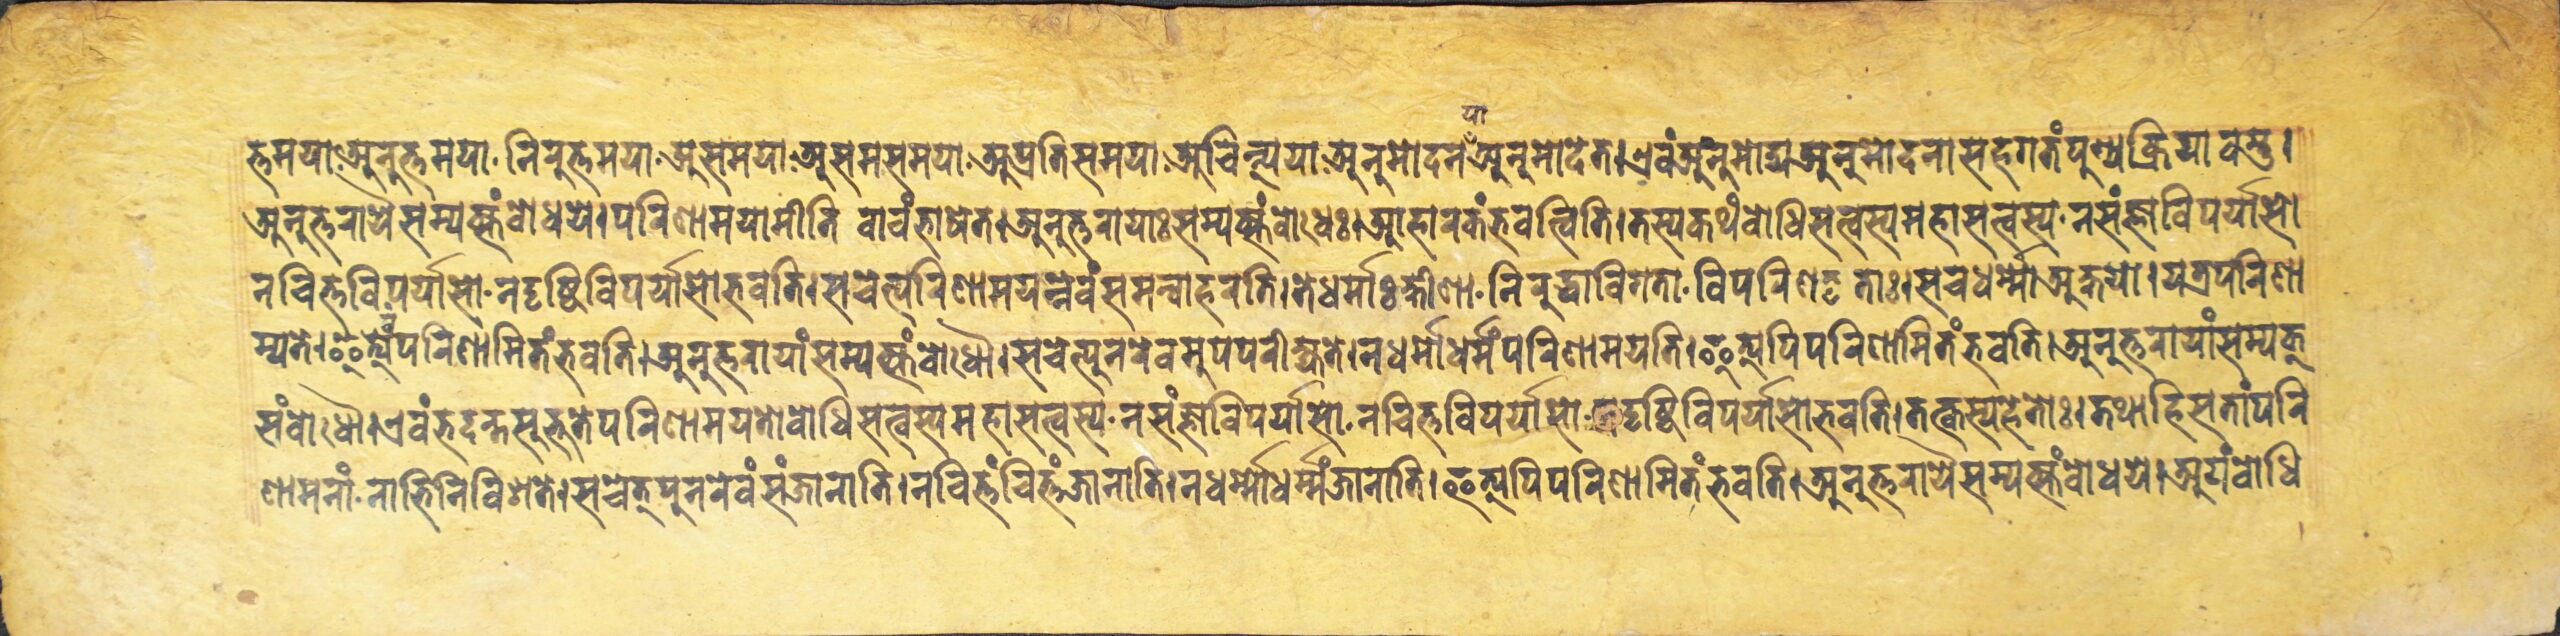 त्तमया अनुत्तमया निरुत्तमया असमया असमसमया अप्रतिसमया अचिन्त्यया अनुमोदनया अनुमोदेत। एवं अनुमोद्य अनुमोदनासहगतं पुण्यक्रियावस्तु।
अनुत्तरायै सम्यक्संबोधये। परिणामयामीति वाचं भाषेत। अनुत्तरायाः सम्यक्संबोधेः। आहारकं भवत्विति। तस्य कथं बोधिसत्वस्य महासत्वस्य न संज्ञाविपर्यासो
न चित्तविपर्यासो न दृष्टिविपर्यासो भवति। सचेत्परिणामयन्नेवं समन्वाहरति। ते धर्माः क्षीणा निरुद्धा विगता विपरिणताः। स च धर्म्मो अक्षयो। यत्र परिणा
म्यते। इत्येवं परिणामितं भवति। अनुत्तरायां सम्यक्संबोधौ। सचेत्पुनरेवमुपपरीक्षते। न धर्मो धर्मं परिणामयति। इत्यपि परिणामितं भवति। अनुत्तरायां सम्यक्
संबोधौ। एवं भदन्त सुभूते परिणामयतो बोधिसत्वस्य महासत्वस्य न संज्ञाविपर्यासो न चित्तविपर्यासो न दृष्टिविपर्यासो भवति। तत्कस्य हेतोः। तथा हि स तां परि
णामनां नाभिनिविशते। सचेत् पुनरेवं संजानाति। न चित्तं चित्तं जानाति। न धर्म्मो धर्म्मं जानाति। इत्यपि परिणामितं भवति। अनुत्तरायै सम्यक्संबोधये। अयं बोधि